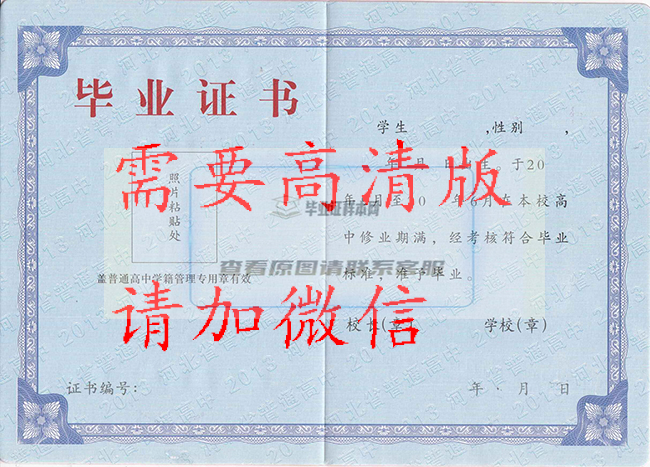 毕业证书
学生 ,性别 ,
年 月 日生 于20
需要高清版
照片粘贴处
年 月至 0 年6月在本校高
毕业证样本网
中修业期满，经考核符合毕业
查看原图请联系客服
标准，准予毕业。
盖普通高中学籍管理专用章有效
请加微信
校长(章) 学校(章)
证书编号: 年 月 日
河北省普通高中 2013